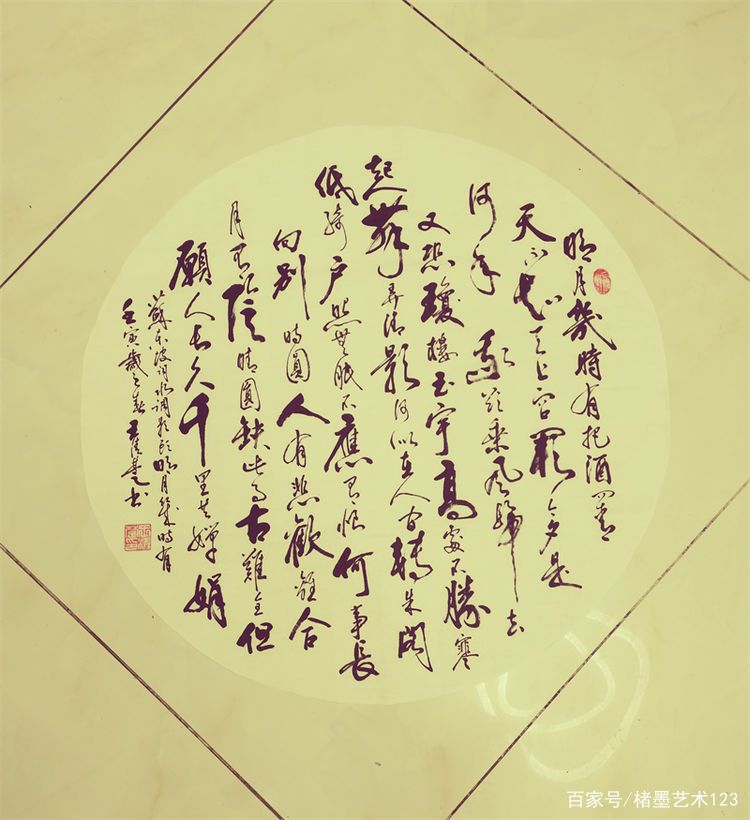 明月幾時有把酒問青
天不知天上宮闕今夕是
何年我欲乘風歸去
又恐瓊樓玉宇高處不勝寒
起舞弄清影何似在人間轉朱閣
低綺户照無眠不應有恨何事長
向別時圓人有悲歡離合
月有陰晴圓缺此事古難全但
願人長久千里共嬋娟
蘇東坡詞水调歌頭明月幾時有
壬寅歲之春書
百家号/楮墨艺术123